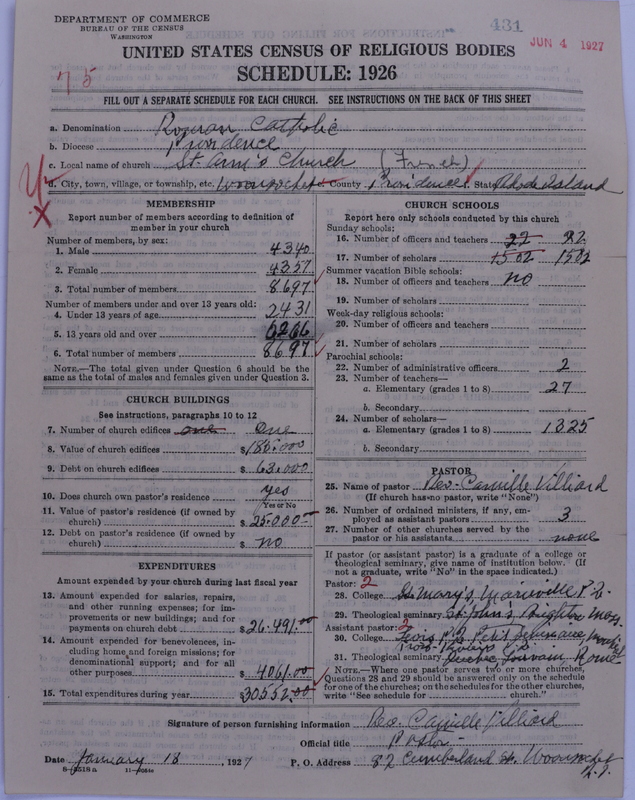 DEPARTMENT OF COMMERCE
BUREAU OF THE CENSUS
WASHINGTON
431
JUN 4 1927
UNITED STATES CENSUS OF RELIGIOUS BODIES
SCHEDULE: 1926
75
FILL OUT A SEPARATE SCHEDULE FOR EACH CHURCH. SEE INSTRUCTIONS ON THE BACK OF THIS SHEET
a. Denomination Roman Catholic
b. Diocese Providence
c. Local name of church St. Ann's Church (French)
d. City, town, village, or township, etc. Woonsocket e. County Providence f. State Rhode Island
MEMBERSHIP
Report number of members according to definition of member in your church
Number of members, by sex:
1. Male 4340
2. Female 4357
3. Total number of members 8697
Number of members under and over 13 years old:
4. Under 13 years of age 2431
5. 13 years old and over 6266
6. Total number of members 8697
NOTE.—The total given under Question 6 should be the same as the total of males and females given under Question 3.
CHURCH BUILDINGS
See instructions, paragraphs 10 to 12
7. Number of church edifices one One
8. Value of church edifices $185.000
9. Debt on church edifices $63.000
10. Does church own pastor's residence yes
Yes or No
11. Value of pastor's residence (if owned by church) $25.000
12. Debt on pastor's residence (if owned by church) $ no
EXPENDITURES
Amount expended by your church during last fiscal year
13. Amount expended for salaries, repairs, and other running expenses; for improvements or new buildings; and for payments on church debt $26.491.00
14. Amount expended for benevolences, including home and foreign missions; for denominational support; and for all other purposes $4061.00
15. Total expenditures during year $30552.00
CHURCH SCHOOLS
Report here only schools conducted by this church
Sunday schools:
16. Number of officers and teachers 22 22
17. Number of scholars 1502 1502
Summer vacation Bible schools:
18. Number of officers and teachers no
19. Number of scholars
Week-day religious schools:
20. Number of officers and teachers
21. Number of scholars
Parochial schools:
22. Number of administrative officers 2
23. Number of teachers—
a. Elementary (grades 1 to 8) 27
b. Secondary
24. Number of scholars—
a. Elementary (grades 1 to 8) 1325
b. Secondary
PASTOR
25. Name of pastor Rev. Camille Villiard
(If church has no pastor, write "None")
26. Number of ordained ministers, if any, employed as assistant pastors 3
27. Number of other churches served by the pastor or his assistants none
If pastor (or assistant pastor) is a graduate of a college or theological seminary, give name of institution below. (If not a graduate, write "No" in the space indicated.)
Pastor: 2
28. College St Mary's Marieville P.Q.
29. Theological seminary St John's Brighton Mass.
Assistant pastor: 2
30. College P.Q. Petit Seminaire
31. Theological seminary Quebec, Louvain Rome
NOTE.—Where one pastor serves two or more churches, Questions 28 and 29 should be answered only on the schedule for one of the churches; on the schedules for the other churches, write "See schedule for church."
Signature of person furnishing information Rev. Camille Villiard
Official title Pastor
Date January 18, 1927 P. O. Address 82 Cumberland St. Woonsocket
R.I.